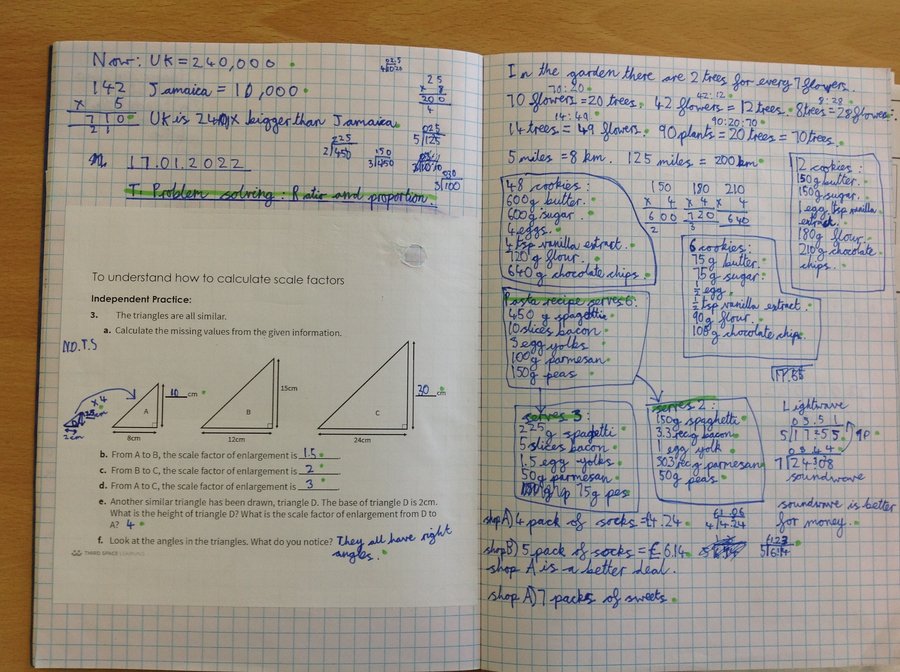 Now: UK = 240,000
142
x 5
710
2 1
Jamaica = 10,000
25
x 8
200
4
UK is 24 x bigger than Jamaica
225
2/450
150
3/450
025
5/125
17.01.2022
T: Problem solving: Ratio and proportion.
3/100
To understand how to calculate scale factors
Independent Practice:
3. The triangles are all similar.
a. Calculate the missing values from the given information.
N.O.T.S
x 4
2cm
D
A
10 cm
8cm
B
15cm
12cm
C
30 cm
24cm
b. From A to B, the scale factor of enlargement is 1.5
c. From B to C, the scale factor of enlargement is 2
d. From A to C, the scale factor of enlargement is 3
e. Another similar triangle has been drawn, triangle D. The base of triangle D is 2cm.
What is the height of triangle D? What is the scale factor of enlargement from D to
A? 4
f. Look at the angles in the triangles. What do you notice? They all have right
angles.
THIRD SPACE LEARNING
In the garden there are 2 trees for every 7 flowers.
70:20 42:12 8:28
70 flowers = 20 trees. 42 flowers = 12 trees. 8 trees = 28 flowers
14:49 90:20:70
14 trees = 49 flowers. 90 plants = 20 trees = 70 trees.
5 miles = 8 km. 125 miles = 200 km
48 cookies:
600g butter.
600g sugar.
4 eggs.
tsp vanilla extract.
720g flour.
640g chocolate chips.
150
x 4
600
2
180
x 4
720
3
210
x 4
640
12 cookies:
150g butter.
150g sugar.
1 egg tsp vanilla
extract.
180g flour.
210g chocolate
chips.
6 cookies:
75g butter.
75g sugar.
1/2 egg.
1/2 tsp vanilla extract.
90g flour.
105g chocolate chips.
Pasta recipe serves 6:
450 g spagettia
10 slices bacon
3 egg yolks
100g parmesan
150g peas
17.55
serves 3:
225 g spagetti
5 slices bacon
1.5 egg yolks
50g parmesan
75g pes
serves 2:
150g spaghetti
3.3rec g bacon
1 egg yolk
g parmesan
50g peas
Lightwave
03.51
5/17.55
03.44
7/24.08
soundwave
soundwave is better
for money.
shop A) 4 pack of socks = £4.24
61.06
4/4.24
shop B) 5 pack of socks = £6.14
£1.23
5/6.14
shop A is a better deal.
shop A) 7 packs of sweets